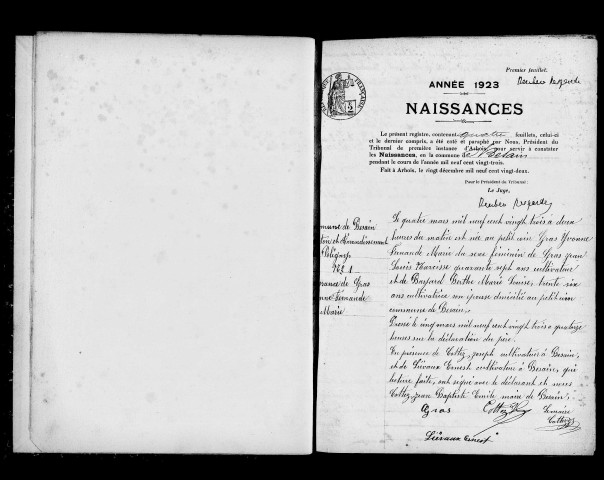 Premier feuillet.
ANNÉE 1923
NAISSANCES
RÉPUBLIQUE FRANÇAISE
Le présent registre, contenant quatre feuillets, celui-ci
et le dernier compris, a été coté et paraphé par Nous, Président du
Tribunal de première instance d'Arbois, pour servir à constater
les Naissances, en la commune de Besain
pendant le cours de l'année mil neuf cent vingt-trois.
Fait à Arbois, le vingt décembre mil neuf cent vingt-deux.
Pour le Président du Tribunal :
Le Juge,
Commune de Besain
Canton et Arrondissement
Poligny
N° 1
Naissance de Gras
Yvonne Fernande
Marie
Le quatre mars mil neuf cent vingt trois à deux
heures du matin est née au petit Gras Yvonne
Fernande Marie du sexe féminin de Gras Jean
Louis Narcisse quarante sept ans cultivateur
et de Berthe Marie Louise, trente six
ans cultivatrice son épouse domiciliés au petit
commune de Besain.
Dressé le cinq mars mil neuf cent vingt trois à quatorze
heures sur la déclaration du père.
En présence de Cottez, Joseph cultivateur à Besain,
et de Liévaux Ernest cultivateur à Besain, qui
lecture faite, ont signé avec le déclarant et nous
Cottez, Jean Baptiste Emile maire de Besain.
Gras Cottez Le maire
Cottez
Liévaux Ernest